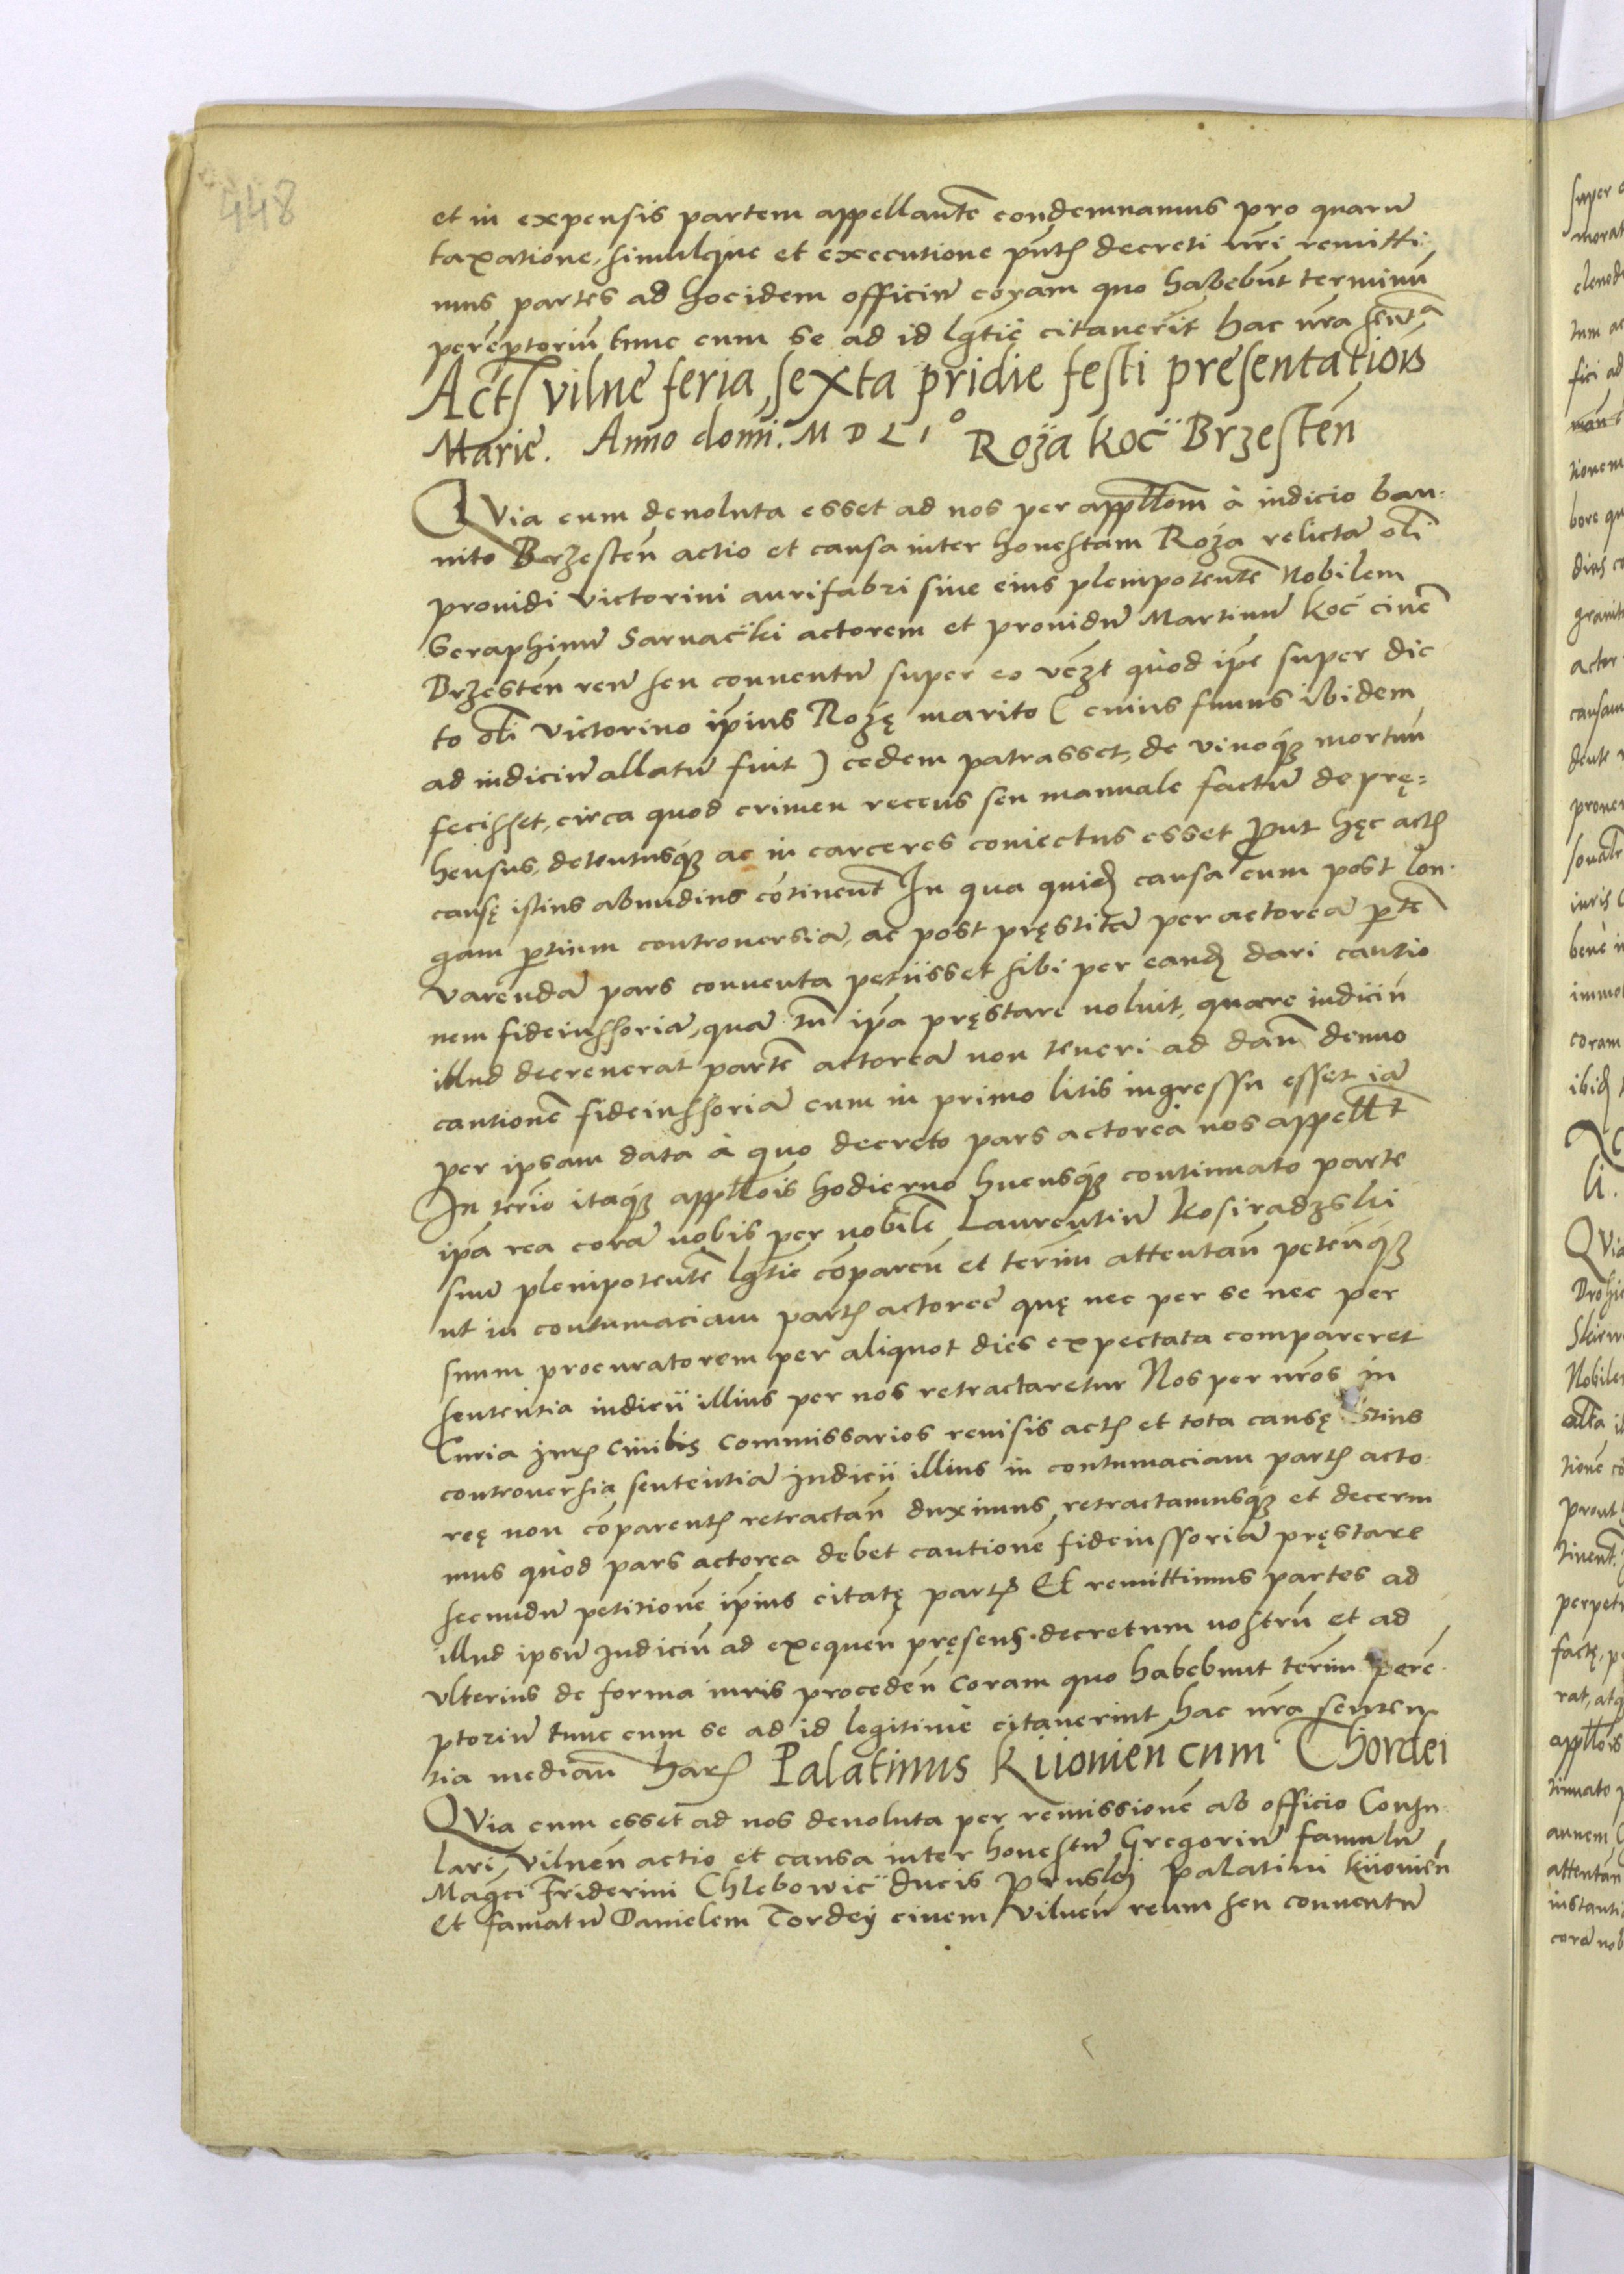 448
et in expensis partem appellantē condemnamus pro quarū
taxatione, simulque et executione pn̄tꝭ decreti nr̄i remitti
mus partes ad hoc idem officiū coram quo habebūt terminū
perēptoriū tunc cum se ad id lgtīe citauerīt hac nr̄a sentᵃ
Actꝭ Vilnę feria sexta pridie festi presentationis
Marie. Anno domi. M D L Iº Roża Koc̈ Brzestēn
QVia cum deuoluta esset ad nos per appllōm à iudicio ban
nito Brzestēn actio et causa inter honestam Rożā relictā oli
prouidi Victorini aurifabri siue eius plenipotentē Nobilem
Seraphinū Sarnac̈ki actorem et prouidū Martinū Koc̈ ciuē
Brzestēn reū seu conuentū super eo vēzt quòd ip̄e super dic
to oli Victorino ip̄ius Rożę marito (cuius funus ibidem
ad iudiciū allatū fuit) cedem patrasset, de viuoqꝫ mortuū
fecisset, circa quod crimen recens seu manuale factū deprę=
hensus, detentusqꝫ ac in carceres coniectus esset Put hęc actꝭ
causę istius abundius cōtinent In qua quidꝭ causa cum post lon
gam ptium controuersiā, ac post pręstitā per actoreā ptē
varendā pars conuenta petiisset sibi per eandꝭ dari cautio
nem fideiussoriā, quā tn̄ ip̄a pręstare noluit, quare iudiciū
illud decreuerat partē actoreā non teneri ad dan̄ denuo
cautionē fideiussoriā cum in primo litis ingressu esset iā
per ipsam data à quo decreto pars actorea nos appellt̄
In terīo itaqꝫ appllōis hodierno hucusqꝫ continuato parte
ip̄a rea corā nobis per nobilē Laurentiū Kosiradzski
suū plenipotentē lgtīe cōparēn et terīm attentān petēnqꝫ
ut in contumaciam partꝭ actoreę quę nec per se nec per
suum procuratorem per aliquot dies expectata compareret
sententia iudicii illius per nos retractaretur Nos per nr̄os in
Curia iurꝭ ciuilis Commissarios reuisis actꝭ et tota causę istius
controuersia sententiā Judicii illius in contumaciam partꝭ acto
reę non cōparentꝭ retractān duximus, retractamusqꝫ et decerni
mus quòd pars actorea debet cautionē fideiussoriā pręstare
secundū petitionē ip̄ius citatę partꝭ Et remittimus partes ad
illud ipsū Judiciū ad exequēn pręsens decretum nostrū et ad
vlterius de forma iuris procedēn Coram quo habebunt terīm perē
ptoriū tunc cum se ad id legitimè citauerint hac nr̄a senten
tia mediān̄ harꝭ Palatinus Kiiouiēn cum Thordei
QVia cum esset ad nos deuoluta per remissionē ab officio Consu
lari, Vilnēn actio et causa inter honestū Gregoriū famulū
Magci Friderini Chlebowic̈ ducis Pruskij palatini Kiiouiēn
Et famatū Danielem Tordey ciuem Vilnēn reum seu conuentū